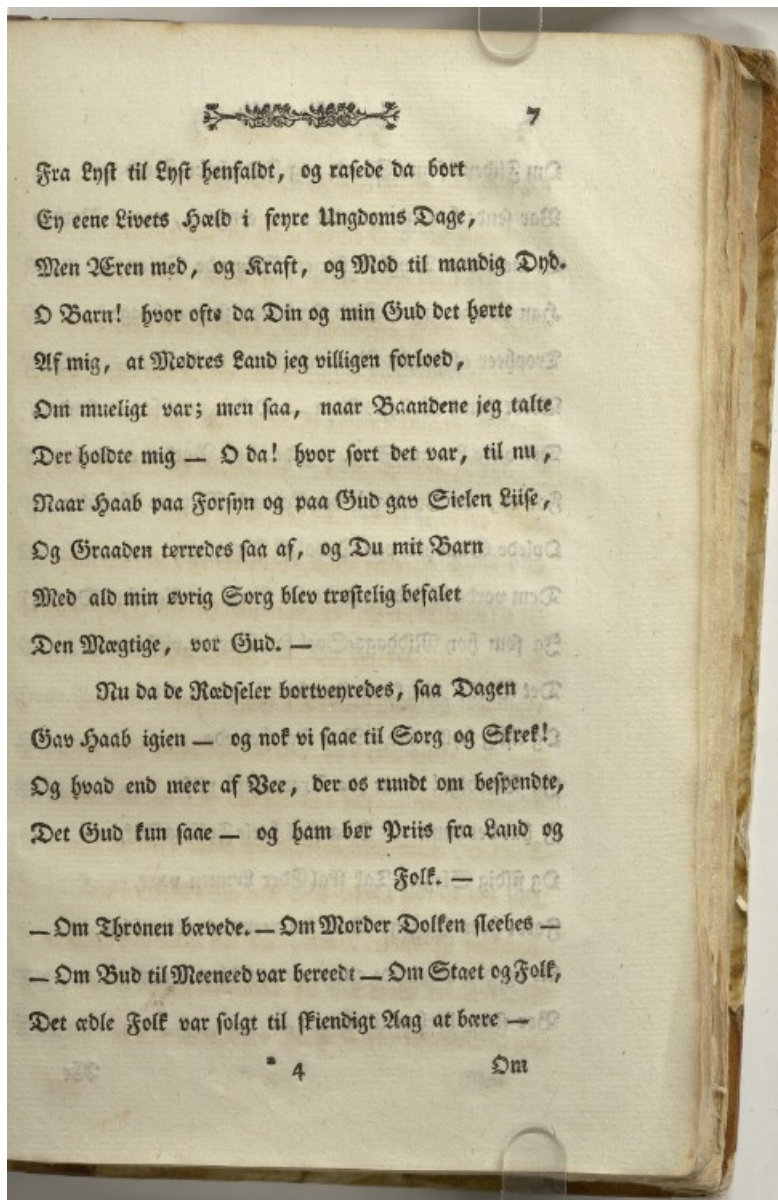 7
Fra Lyst til Lyst henfaldt, og rasede da bort
Ey eene Livets Hæld i feyre Ungdoms Dage,
Men Æren med, og Kraft, og Mod til mandig Dyd.
O Barn! hvor ofte da Din og min Gud det hørte
Af mig, at Mødres Land jeg villigen forloed,
Om mueligt var; men saa, naar Baandene jeg talte
Der holdte mig — O da! hvor sort det var, til nu,
Naar Haab paa Forsyn og paa Gud gav Sielen Liise,
Og Graaden tørredes saa af, og Du mit Barn
Med ald min øvrig Sorg blev trøstelig befalet
Den Mægtige, vor Gud. —
Nu da de Rædseler bortveyredes, saa Dagen
Gav Haab igien — og nok vi saae til Sorg og Skrek!
Og hvad end meer af Vee, der os rundt om bespendte,
Det Gud kun saae — og ham bør Priis fra Land og
Folk. —
— Om Thronen bævede. — Om Morder Dolken sleebes —
— Om Bud til Meeneed var bereedt — Om Staet og Folk,
Det ædle Folk var solgt til skiendigt Aag at bære —
* 4 Om